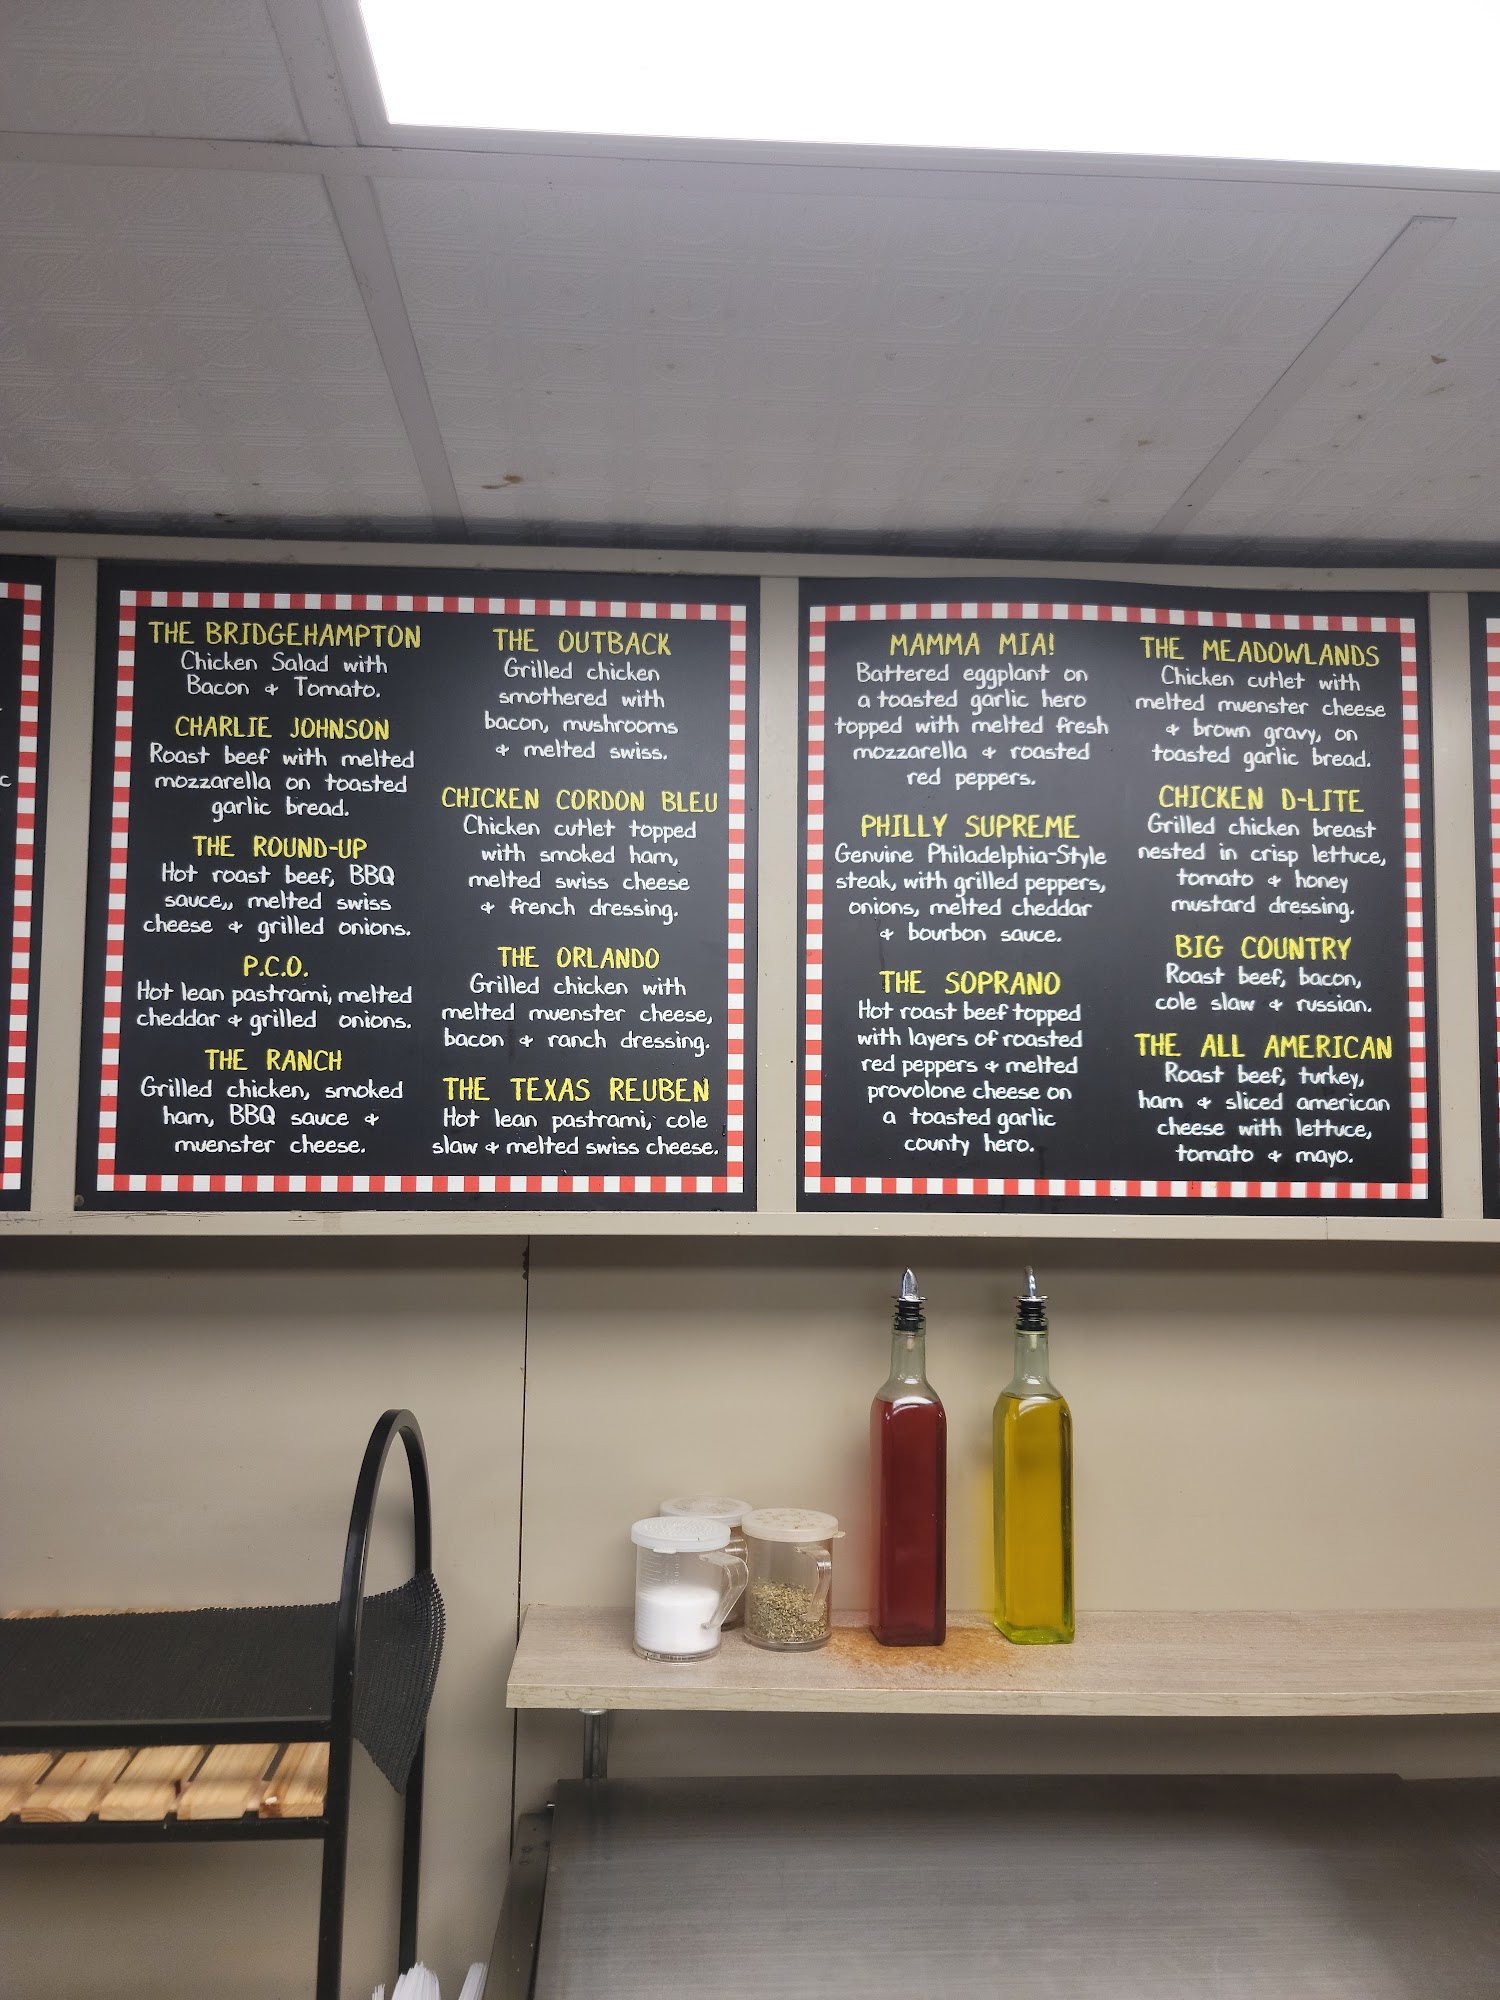 THE BRIDGEHAMPTON
Chicken Salad with
Bacon & Tomato.
CHARLIE JOHNSON
Roast beef with melted
mozzarella on toasted
garlic bread.
THE ROUND-UP
Hot roast beef, BBQ
sauce,, melted swiss
cheese & grilled onions.
P.C.O.
Hot lean pastrami, melted
cheddar & grilled onions.
THE RANCH
Grilled chicken, smoked
ham, BBQ sauce &
muenster cheese.
THE OUTBACK
Grilled chicken
smothered with
bacon, mushrooms
& melted swiss.
CHICKEN CORDON BLEU
Chicken cutlet topped
with smoked ham,
melted swiss cheese
& french dressing.
THE ORLANDO
Grilled chicken with
melted muenster cheese,
bacon & ranch dressing.
THE TEXAS REUBEN
Hot lean pastrami, cole
slaw & melted swiss cheese.
MAMMA MIA!
Battered eggplant on
a toasted garlic hero
topped with melted fresh
mozzarella & roasted
red peppers.
PHILLY SUPREME
Genuine Philadelphia-Style
steak, with grilled peppers,
onions, melted cheddar
& bourbon sauce.
THE SOPRANO
Hot roast beef topped
with layers of roasted
red peppers & melted
provolone cheese on
a toasted garlic
county hero.
THE MEADOWLANDS
Chicken cutlet with
melted muenster cheese
& brown gravy, on
toasted garlic bread.
CHICKEN D-LITE
Grilled chicken breast
nested in crisp lettuce,
tomato & honey
mustard dressing.
BIG COUNTRY
Roast beef, bacon,
cole slaw & russian.
THE ALL AMERICAN
Roast beef, turkey,
ham & sliced american
cheese with lettuce,
tomato & mayo.